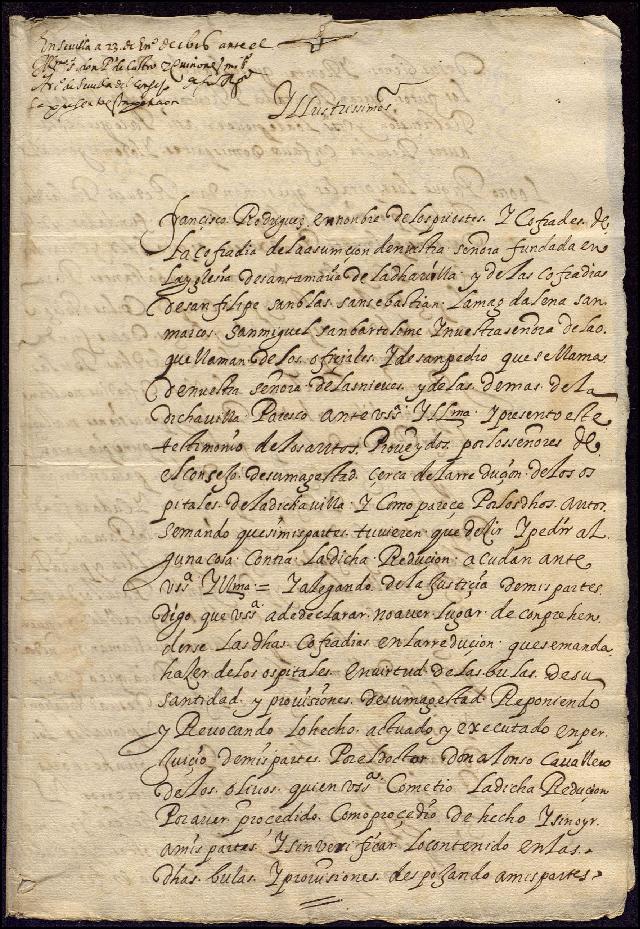 En Sevilla a 23 de En.º de 1616 ante el
Ill.mo S. don P. de Castro y Quiñones mi s.r
Ar.º de Sevilla del Consejo
se presento esta peticion
Yllustrissimo S.r
Françisco Rodriguez en nonbre de los priostes. Y Cofrades. de
La Cofradia de la asumçion de nuestra señora fundada en
La yglesia de santa maria de la dha villa. y de las Cofradias
de san filipe san blas. san sebastian. la magdalena san
marcos. san miguel san bartolome. Y nuestra señora de la o.
que llaman de los. ofiçiales. Y de san pedro que se llama
de nuestra señora de las nieves. y de las demas. de la
dicha villa. Paresco ante vss.ª Yllma. Y presento este
testimonio de los autos. Proveydos. por los señores de
el consejo. de su magestad. çerca de la rreduçion. de los os
pitales. de la dicha villa. Y Como pareçe Por los dhos. autos.
se mando que si mis partes. tuviesen que deçir Y pedir al
guna cosa. contra. La dicha. Reduçion. acudan ante
vss.ª Yllma = Y alegando. de la Justiçia de mis partes.
digo que vss.ª a de declarar. no aver lugar. de conprehen
derse Las dhas. Cofradias en la rreduçion. que se manda
hazer de los ospitales. en virtud. de las bulas. de su
santidad. y provisiones. de su magestad. Reponiendo
y Revocando lo hecho. actuado y executado en per
Juiçio de mis partes. Por el doctor don alonso Cavallero
de los. olivos. quien vss.ª Cometio La dicha Reduçion
Por aver proçedido. Como proçedio de hecho Y sin oyr.
a mis partes. Y sin verificar. lo contenido en las.
dhas. bulas. Y provisiones. despojando a mis partes.